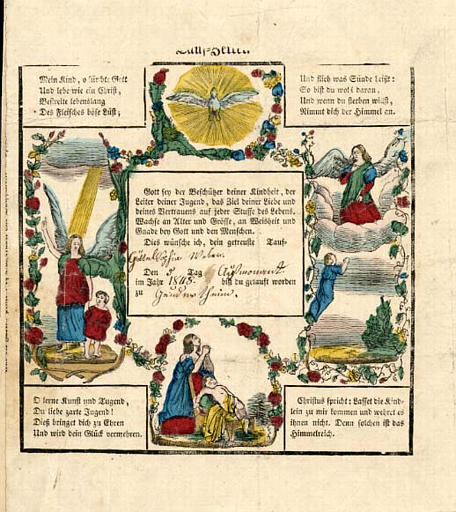 Tauf-Zettel
Mein Kind, o fürchte Gott
Und lebe wie ein Christ,
Bestreite lebenslang
Des Fleisches böse Lüst;
Und flieh was Sünde heißt:
So bist du wohl daran,
Und wenn du sterben mußt,
Nimmt dich der Himmel an.
Gott sey der Beschützer deiner Kindheit, der
Leiter deiner Jugend, das Ziel deiner Liebe und
deines Vertrauens auf jeder Stuffe des Lebens.
Wachse an Alter und Grösse, an Weisheit und
Gnade bey Gott und den Menschen.
Dies wünsche ich, dein getreuste Tauf-
Den Tag
im Jahr 1845. bist du getauft worden
zu
O lerne Kunst und Tugend,
Du liebe zarte Jugend!
Dieß bringet dich zu Ehren
Und wird dein Glück vermehren.
Christus spricht: Lasset die Kind-
lein zu mir kommen und wehret es
ihnen nicht. Denn solchen ist das
Himmelreich.